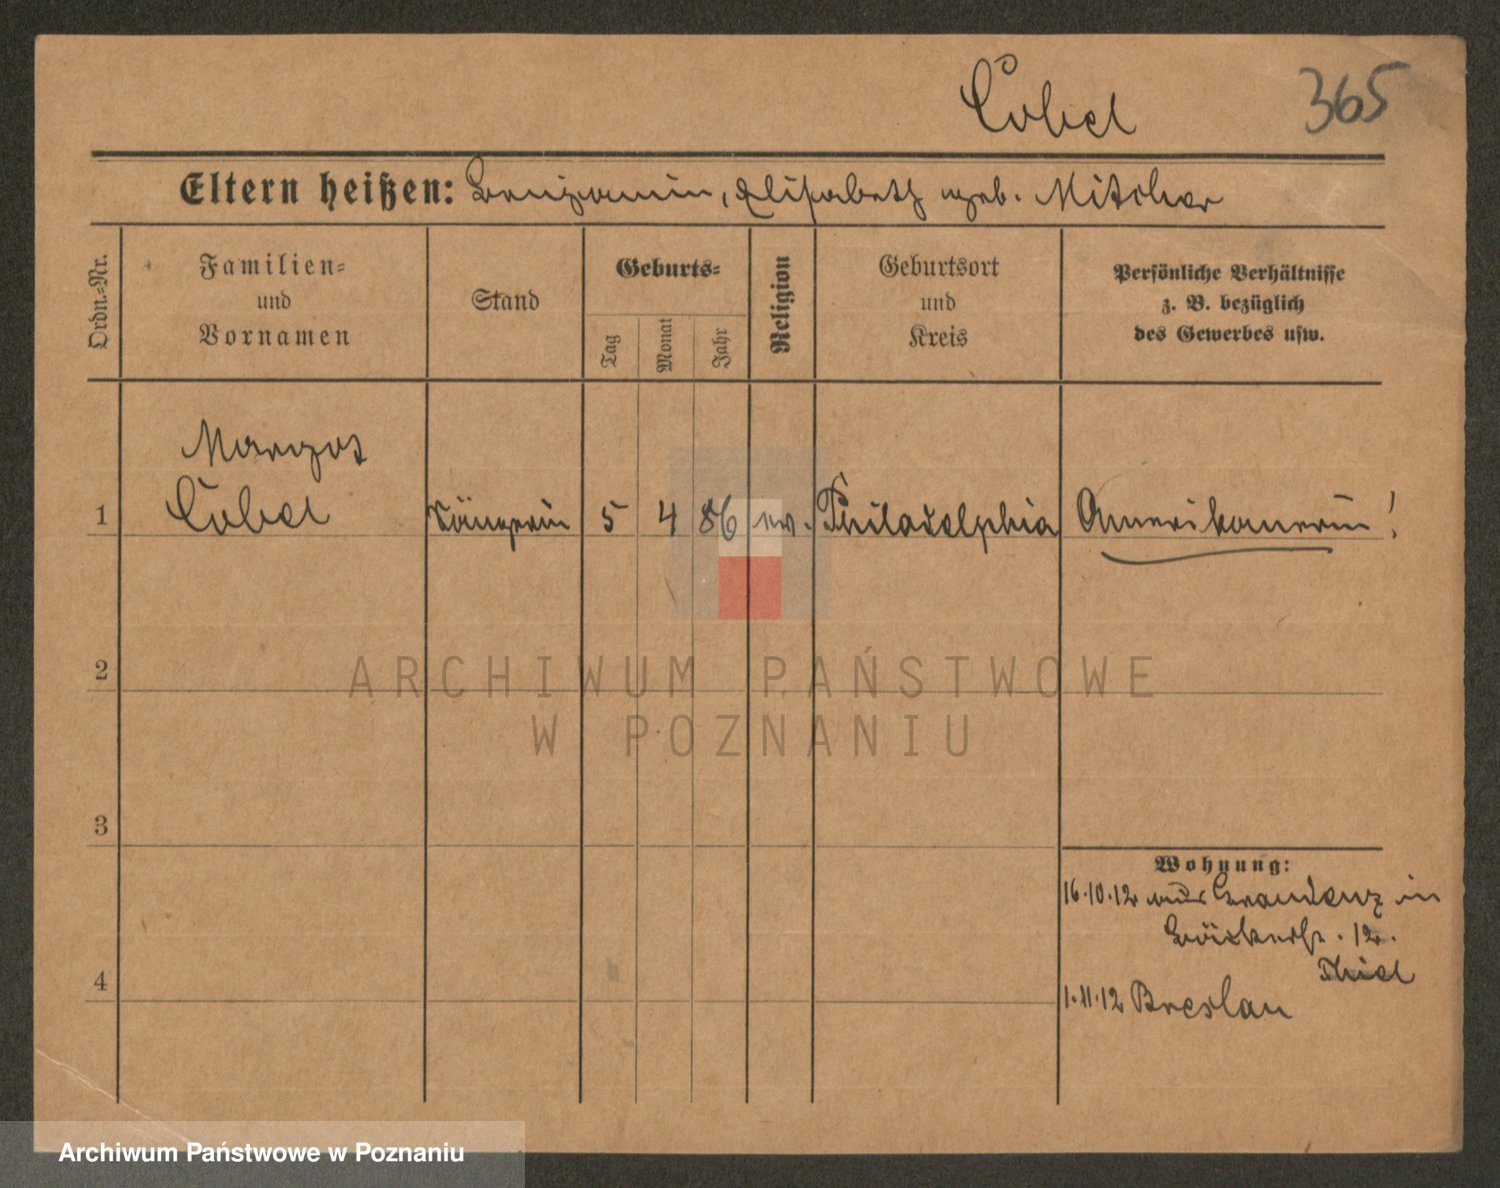 Cobel 365
Eltern heißen: Benjamin, Elisabeth geb. Mitcher
Ordn.-Nr.
Familien-
und
Vornamen
Stand
Geburts-
Tag
Monat
Jahr
Religion
Geburtsort
und
Kreis
Persönliche Verhältnisse
z. B. bezüglich
des Gewerbes usw.
Margot
1 Cobel Sängerin 5 4 86 ev. Philadelphia Amerikanerin!
2
3
4
Wohnung:
16.10.12 aus Graudenz in
Bäckerstr. 12.
Thiel
1.11.12 Breslau
ARCHIWUM PAŃSTWOWE
W POZNANIU
Archiwum Państwowe w Poznaniu